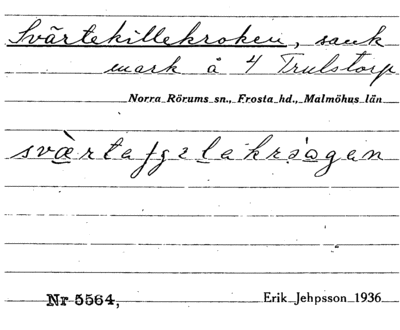 Svärtekillekroken, sank
mark å 4 Trulstorp
Norra Rörums sn., Frosta hd., Malmöhus län
Nr 5564, Erik Jehpsson 1936